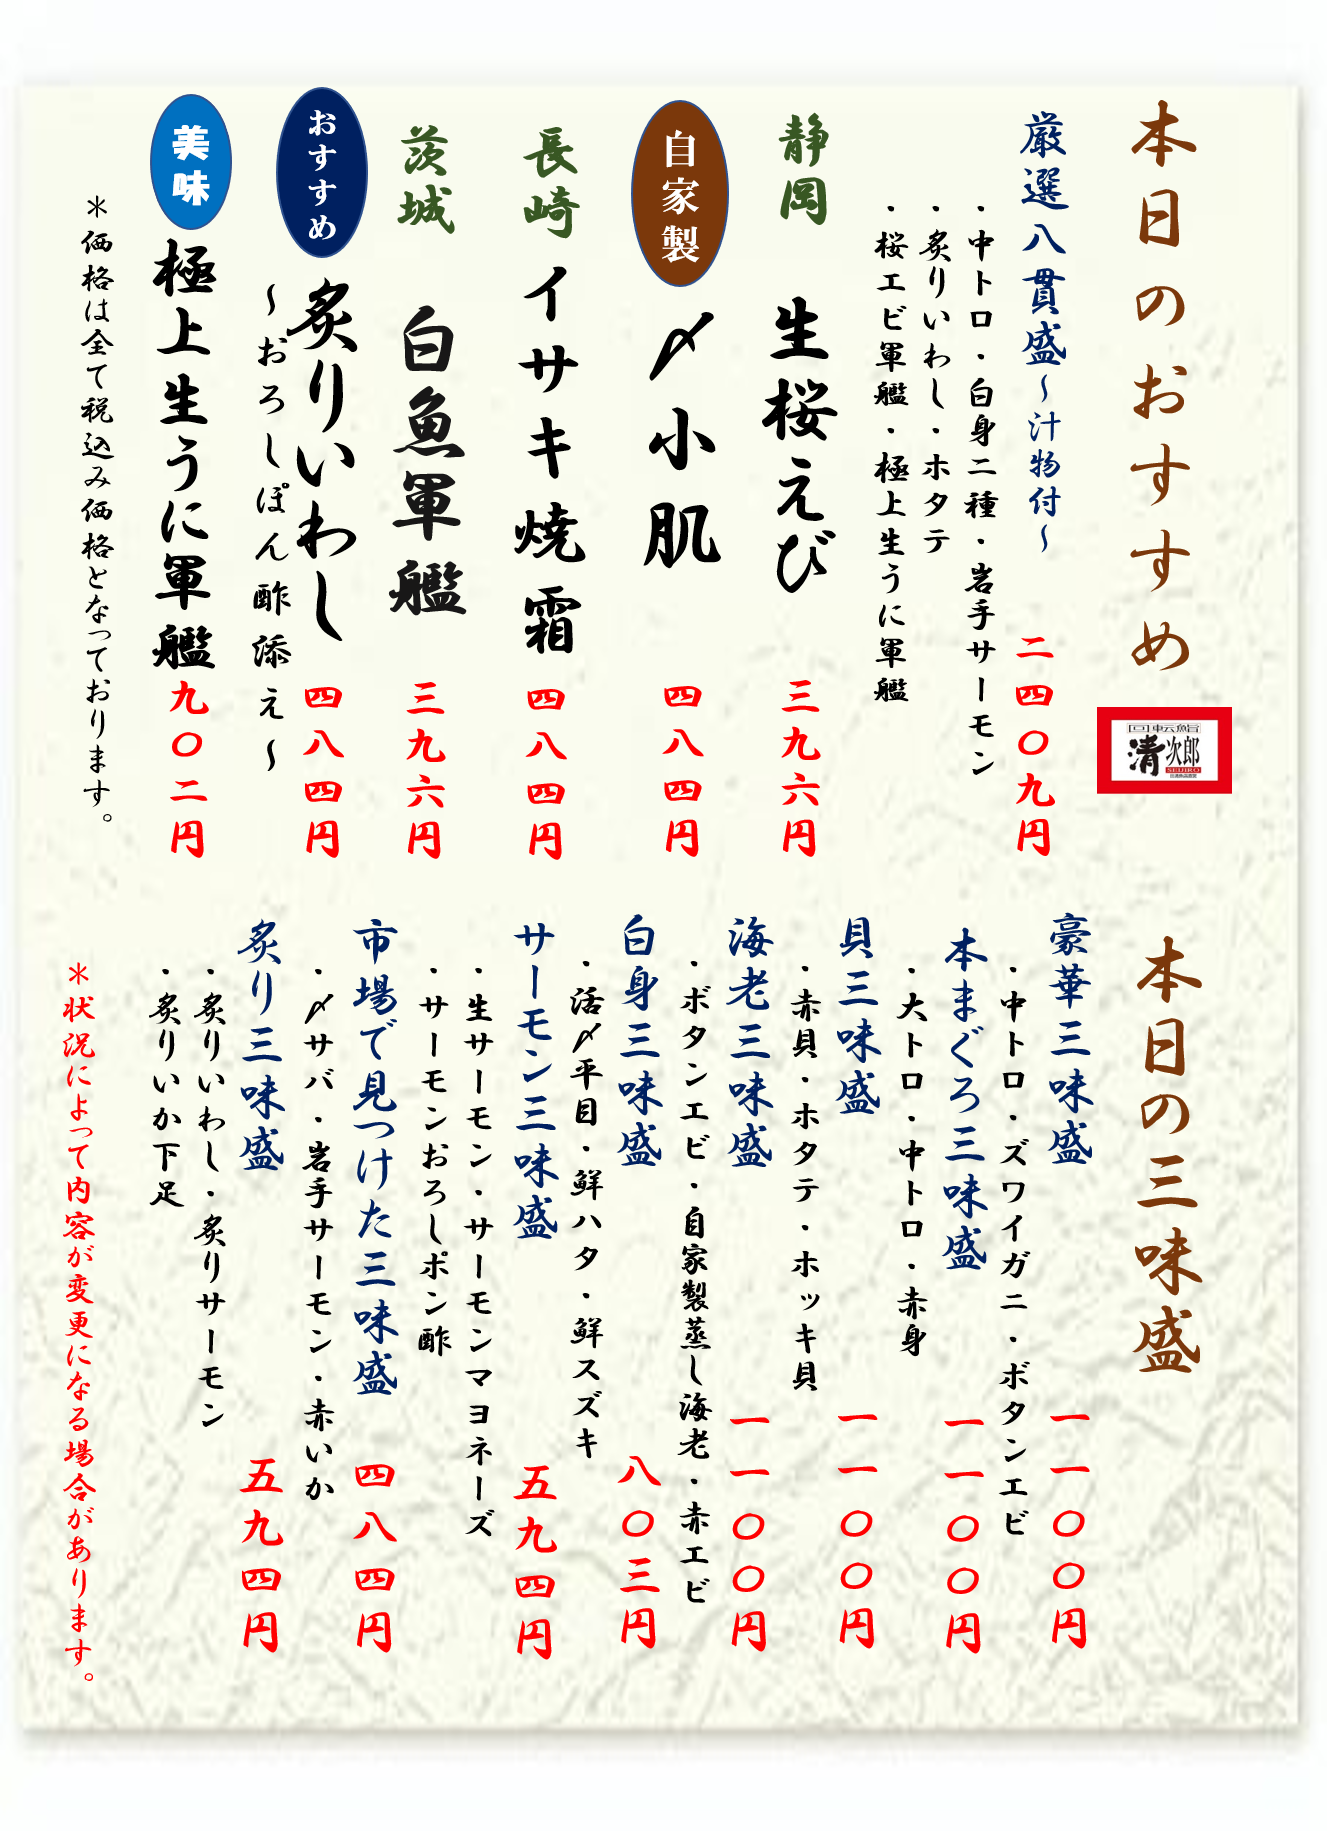 本日のおすすめ
回転鮨
清次郎
SEIJIRO
厳選八貫盛～汁物付～ 二四〇九円
・中トロ・白身二種・岩手サーモン
・炙りいわし・ホタテ
・桜エビ軍艦・極上生うに軍艦
静岡 生桜えび 三九六円
自家製 〆小肌 四八四円
長崎 イサキ焼霜 四八四円
茨城 白魚軍艦 三九六円
おすすめ 炙りいわし 四八四円
～おろしぽん酢添え～
美味 極上生うに軍艦 九〇二円
＊価格は全て税込み価格となっております。
本日の三味盛
豪華三味盛 一一〇〇円
・中トロ・ズワイガニ・ボタンエビ
本まぐろ三味盛 一一〇〇円
・大トロ・中トロ・赤身
貝三味盛 一一〇〇円
・赤貝・ホタテ・ホッキ貝
海老三味盛 一一〇〇円
・ボタンエビ・自家製蒸し海老・赤エビ
白身三味盛 八〇三円
・活〆平目・鮮ハタ・鮮スズキ
サーモン三味盛 五九四円
・生サーモン・サーモンマヨネーズ
・サーモンおろしポン酢
市場で見つけた三味盛 四八四円
・〆サバ・岩手サーモン・赤いか
炙り三味盛 五九四円
・炙りいわし・炙りサーモン
・炙りいか下足
＊状況によって内容が変更になる場合があります。